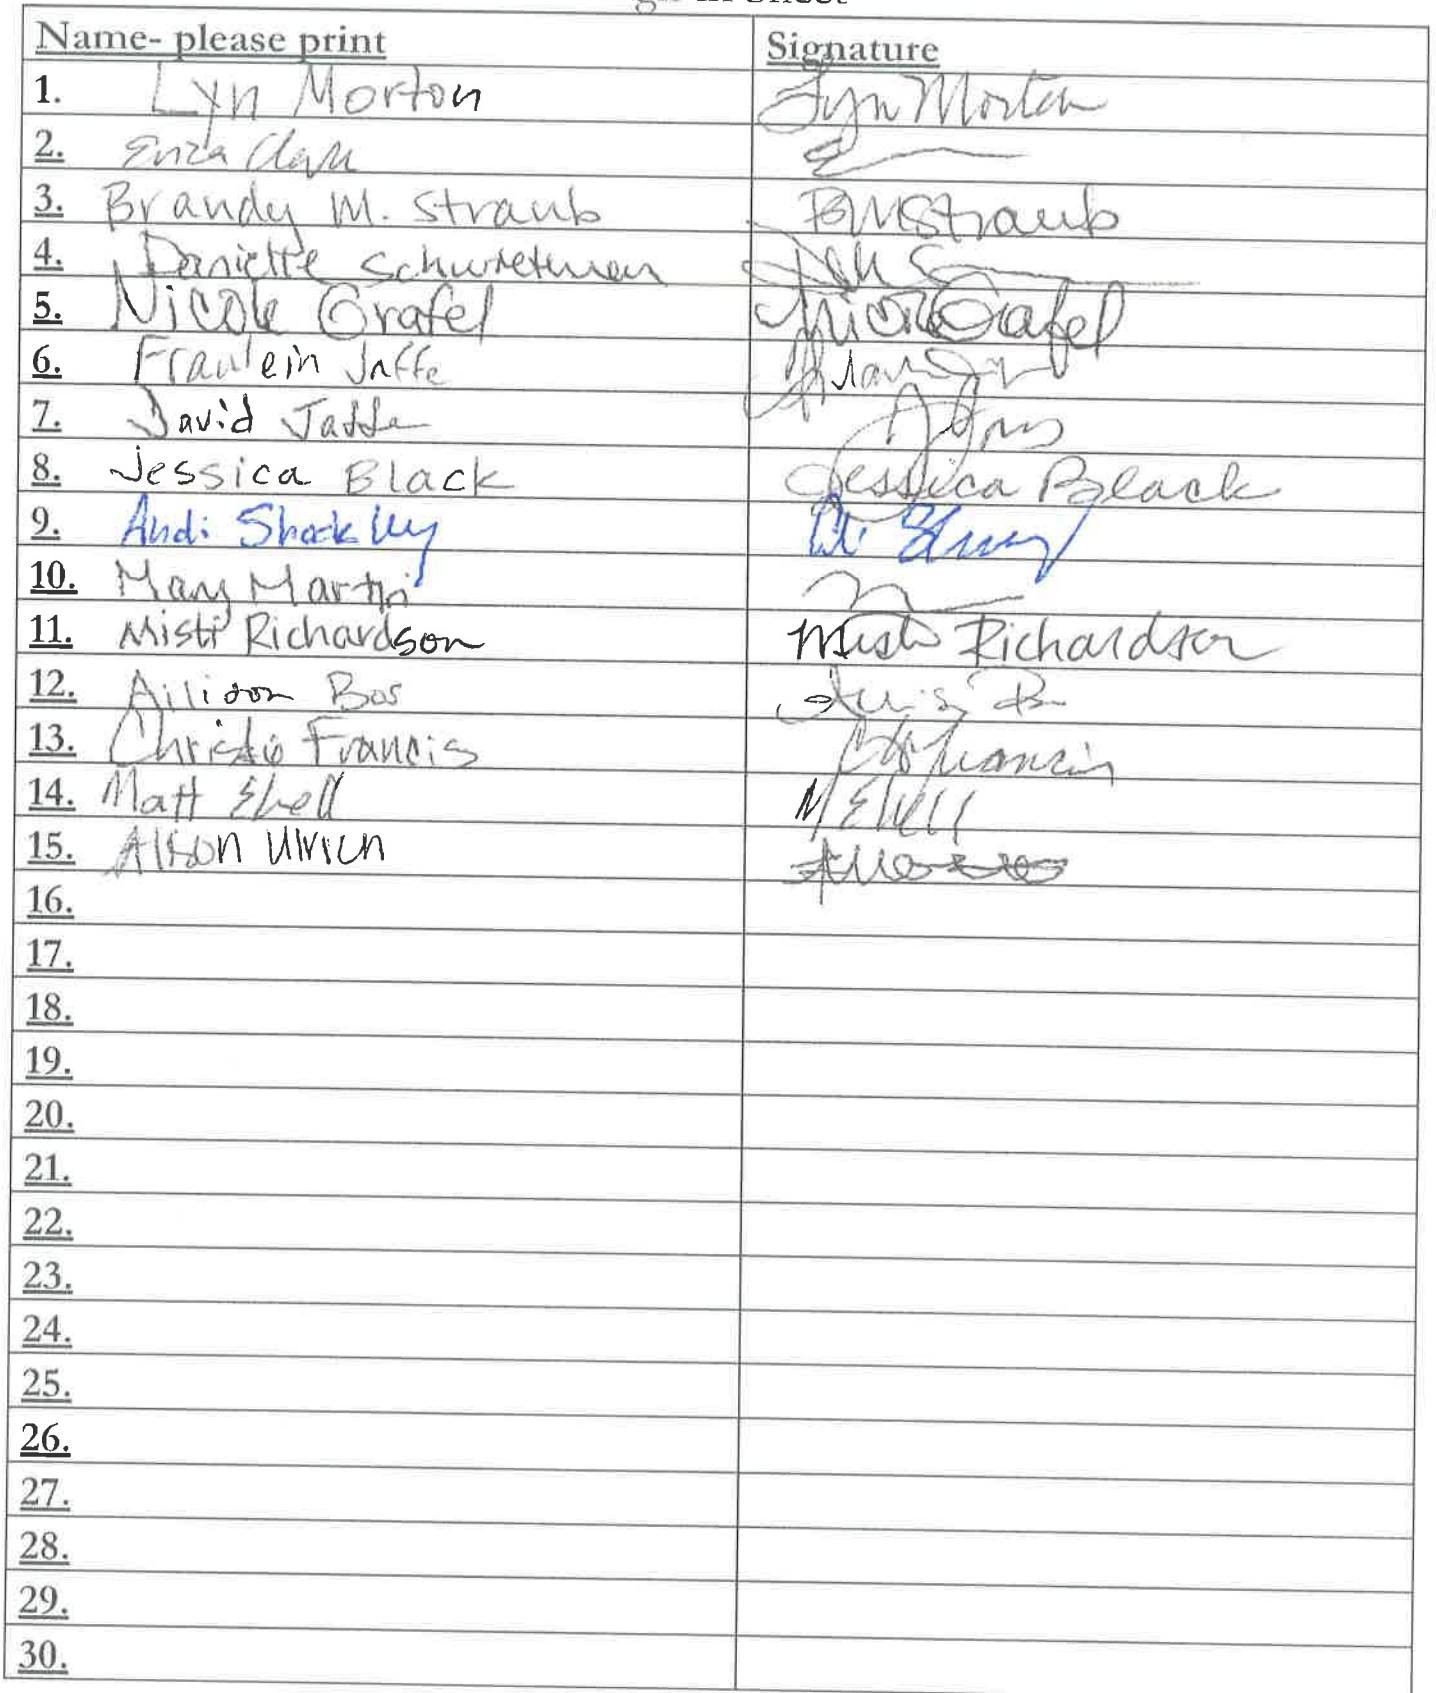 Name- please print Signature
1. Lyn Morton Lyn Morton
2. Erica Clark
3. Brandy M. Straub BMStraub
4. Danielle Schwieterman
5. Nicole Grafel Nicole Grafel
6. Fraulein Jaffe
7. David Jaffe
8. Jessica Black Jessica Black
9. Andi Shockley
10. Mary Martin
11. Misti Richardson Misti Richardson
12. Allison Bos
13. Christie Francis
14. Matt Ebell M Ebell
15. Alison Ulrich
16.
17.
18.
19.
20.
21.
22.
23.
24.
25.
26.
27.
28.
29.
30.